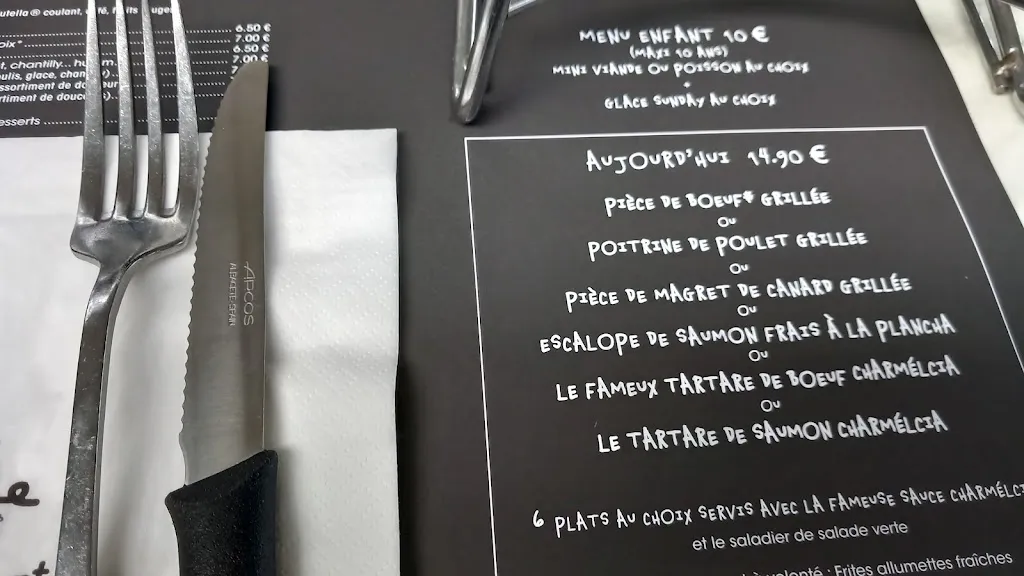 utella ® coulant, café, fruits rouges
6.50 €
7.00 €
oix"
6.50 €
t, chantilly..
7.00
oulis, glace, chan
ssortiment de do
rtiment de douce
esserts
ARCOS
ALBACETE-SPAIN
MENU ENFANT 10 €
(MAXI 10 ANS)
MINI VIANDE OU POISSON AU CHOIX
+
GLACE SUNDAY AU CHOIX
AUJOURD'HUI 14.90 €
PIÈCE DE BOEUF* GRILLÉE
OU
POITRINE DE POULET GRILLÉE
OU
PIÈCE DE MAGRET DE CANARD GRILLÉE
OU
ESCALOPE DE SAUMON FRAIS À LA PLANCHA
OU
LE FAMEUX TARTARE DE BOEUF CHARMÉLCIA
OU
LE TARTARE DE SAUMON CHARMÉLCIA
6 PLATS AU CHOIX SERVIS AVEC LA FAMEUSE SAUCE CHARMÉLCI
et le saladier de salade verte
à volonté : Frites allumettes fraîches